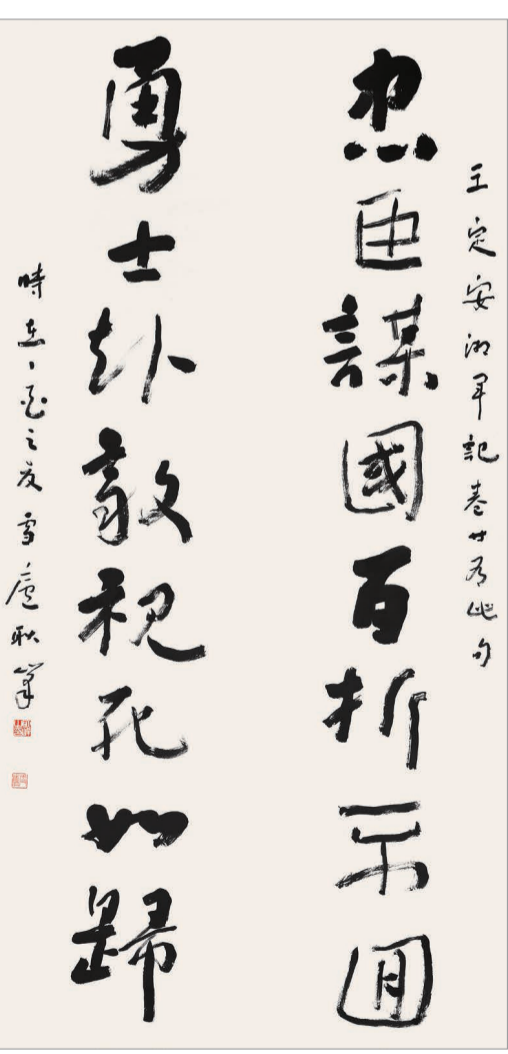 王定安湘軍記卷廿有此句
忠臣謀國百折不回
勇士赴敵視死如歸
時在之夏雪廬耿筆